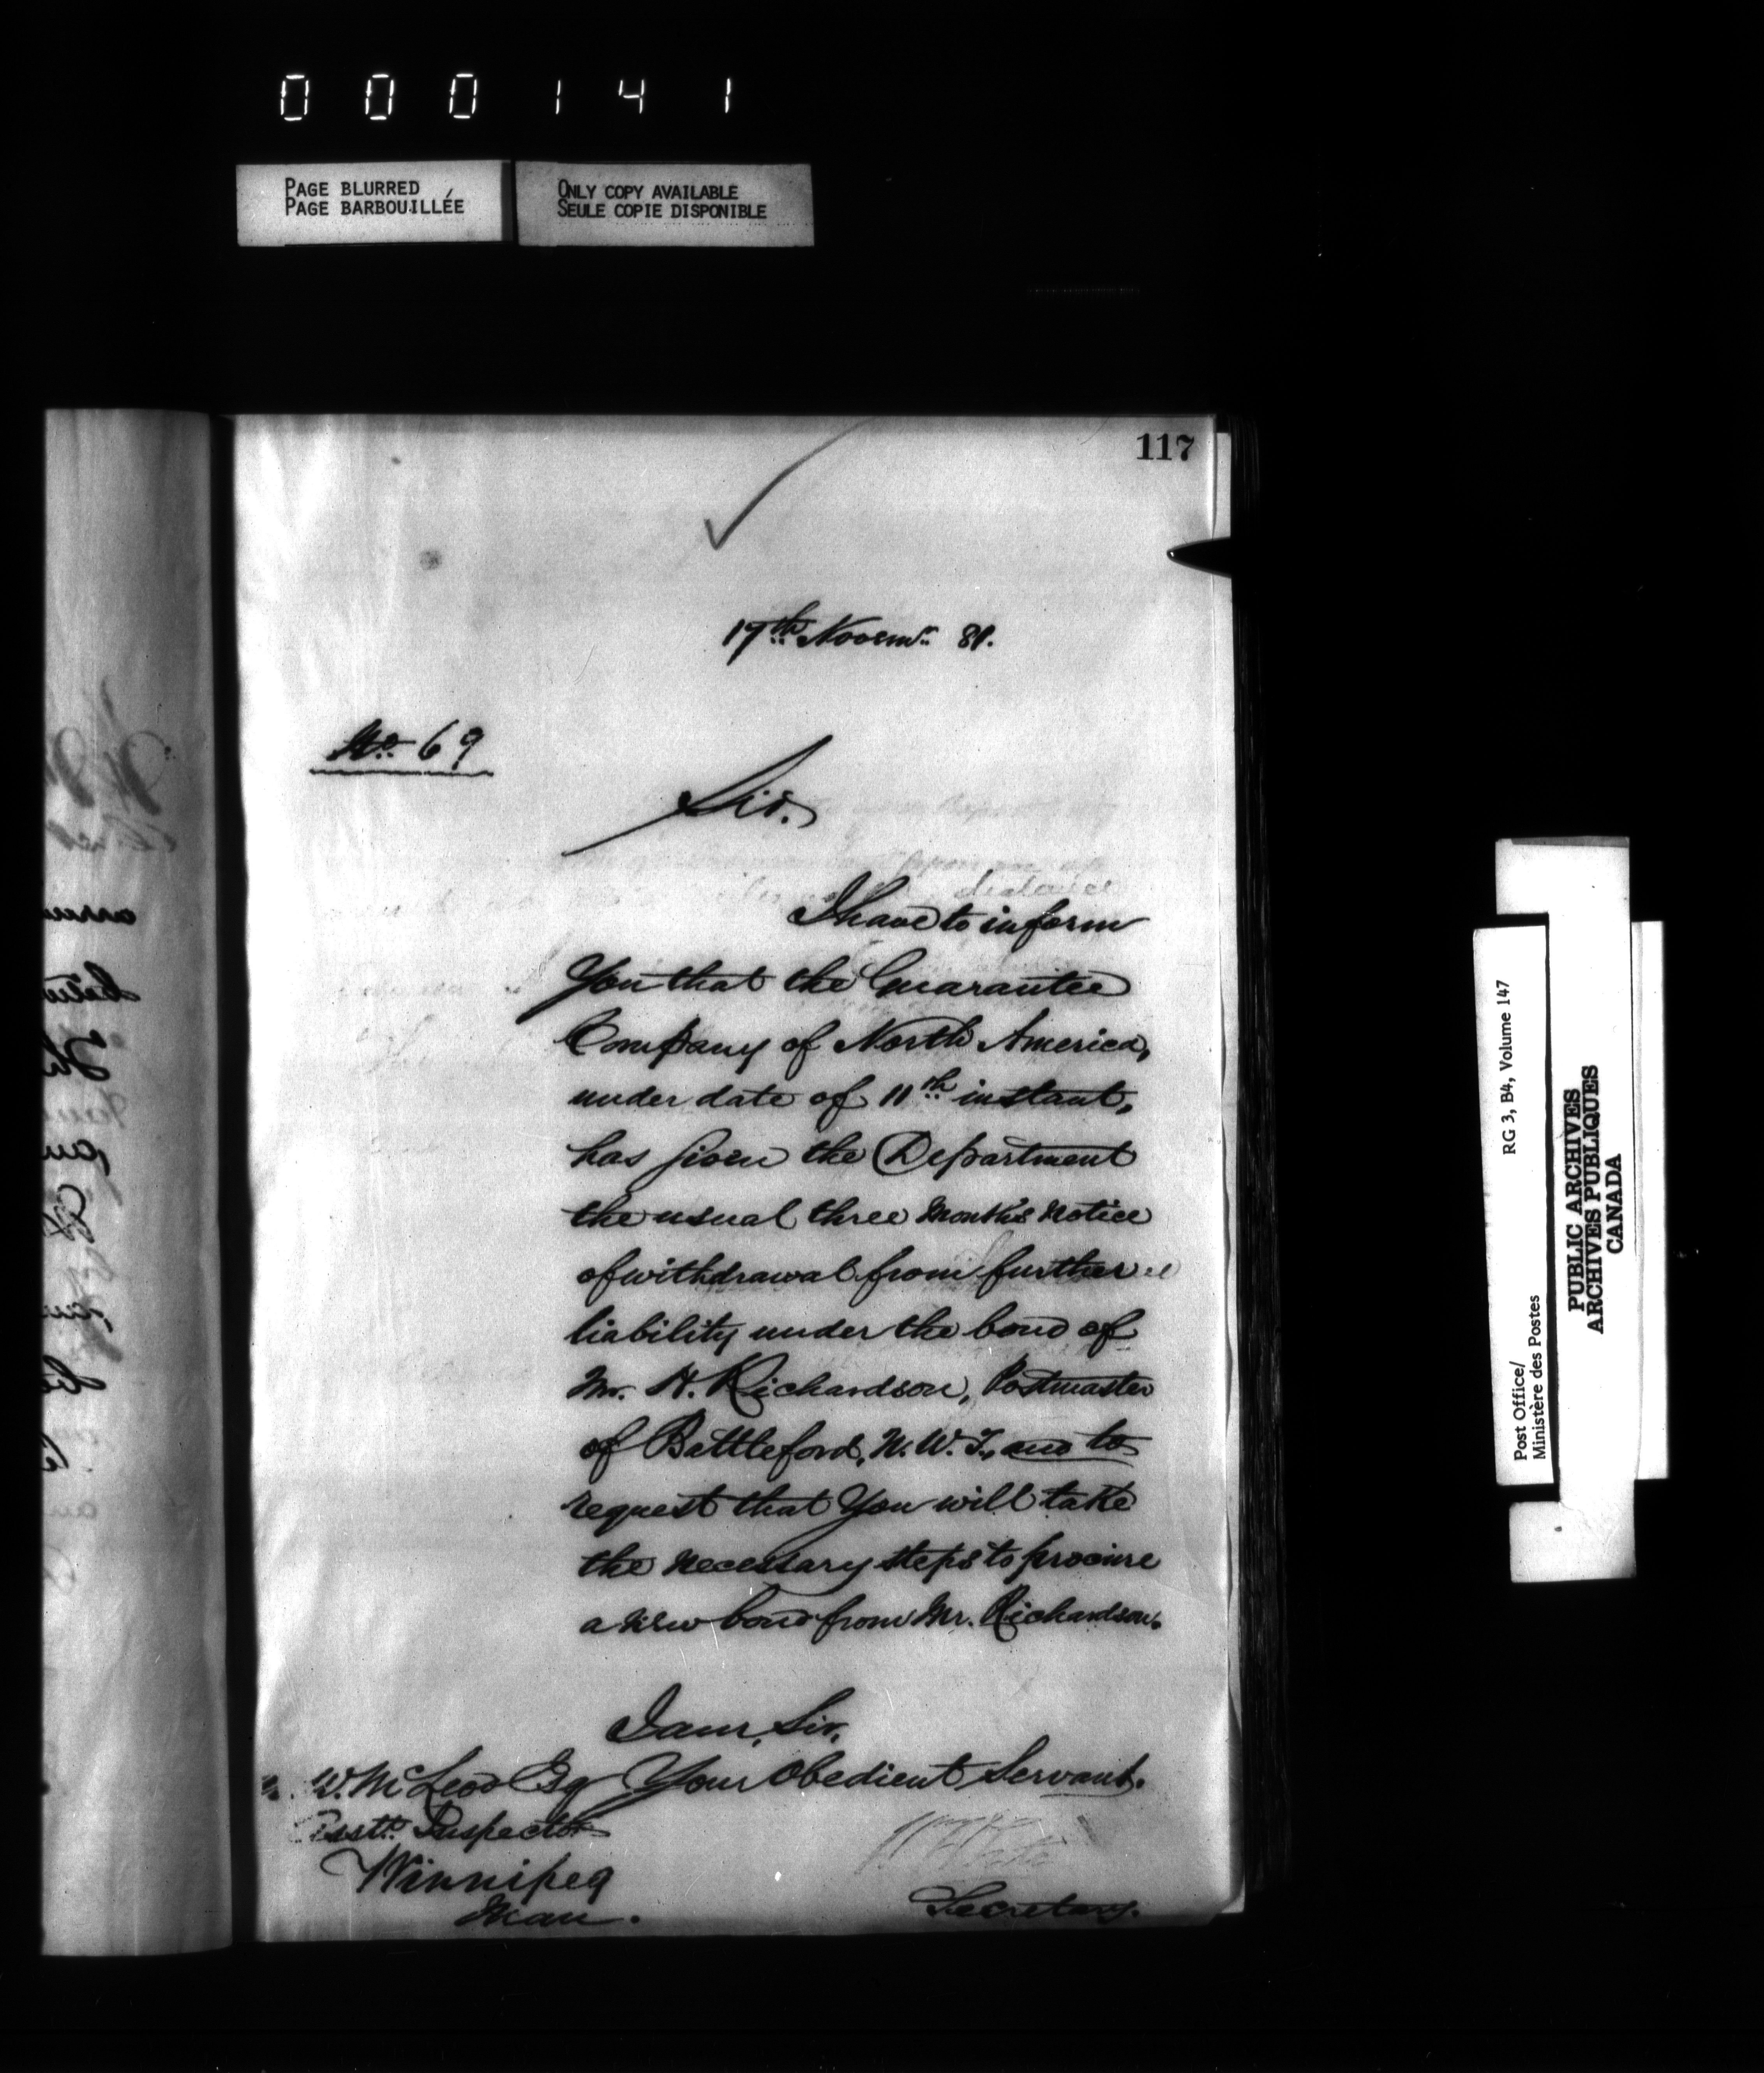 000141
PAGE BLURRED
PAGE BARBOUILLÉE
ONLY COPY AVAILABLE
SEULE COPIE DISPONIBLE
117
17th Novemr. 81.
No. 69
Sir.
I have to inform
You that the Guarantee
Company of North America,
under date of 11th instant,
has given the Department
the usual three Months Notice
of withdrawal from further
liability under the bond of
Mr. H. Richardson, Postmaster
of Battleford, N.W.T., and to
request that You will take
the necessary steps to procure
a new bond from Mr. Richardson.
I am, Sir,
Your Obedient Servant.
W. McLeod Esq
Asstt. Inspector
Winnipeg
Man.
Secretary.
Post Office/
Ministère des Postes
RG 3, B4, Volume 147
PUBLIC ARCHIVES
ARCHIVES PUBLIQUES
CANADA